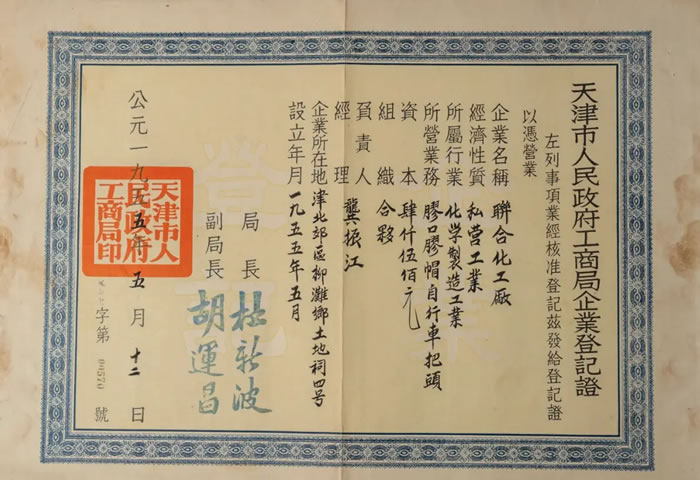 天津市人民政府工商局企業登記證
左列事項業經核准登記茲發給登記證
以憑營業
企業名稱 聯合化工廠
經濟性質 私营工業
所屬行業 化学製造工業
所營業務 膠口膠帽自行車把頭
資本 肆仟伍佰元
組織 合夥
負責人
經理 龔振江
企業所在地 津北郊區柳灘鄉土地祠四号
設立年月 一九五五年五月
局長 杜新波
副局長 胡運昌
公元一九五五年五月十二日
字第 00570 號
天津市人民政府工商局印